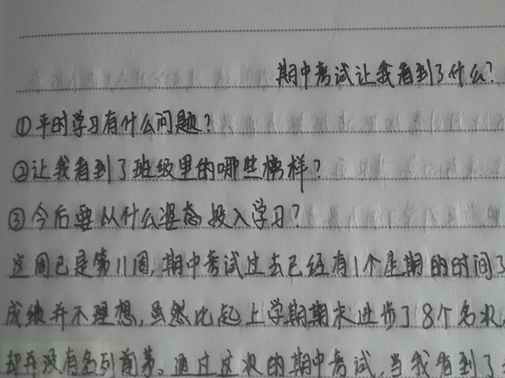 期中考试让我看到了什么?
①平时学习有什么问题?
②让我看到了班级里的哪些榜样?
③今后要从什么姿态投入学习?
这周已是第11周,期中考试过去已经有1个星期的时间了
成绩并不理想,虽然比起上学期期末进步了8个名次,
却并没有名列前茅。通过这次的期中考试,当我看到了